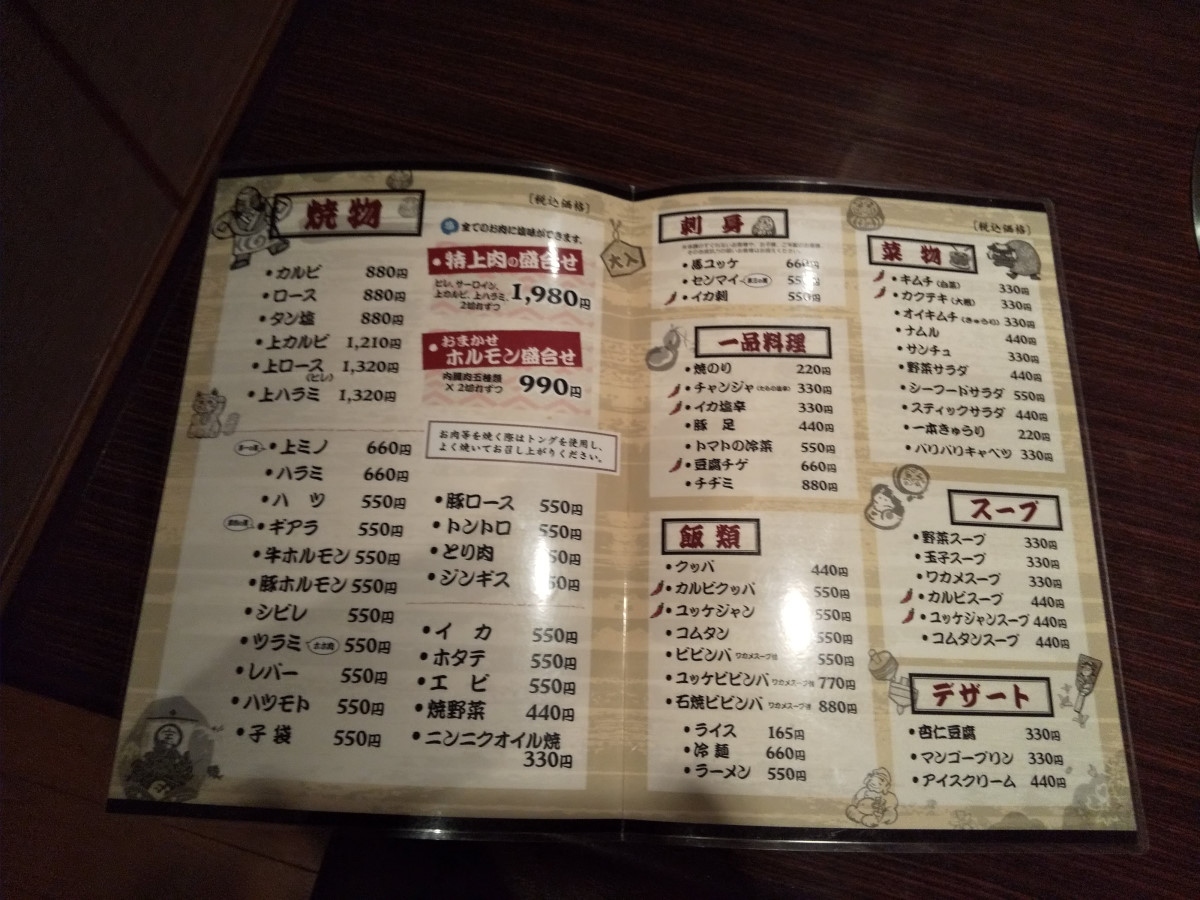 焼物
〔税込価格〕
全てのお肉に塩味ができます。
・カルビ 880円
・ロース 880円
・タン塩 880円
・上カルビ 1,210円
・上ロース 1,320円
(ヒレ)
・上ハラミ 1,320円
・特上肉の盛合せ
ヒレ、サーロイン、
上カルビ、上ハラミ、
2切れずつ
1,980円
・おまかせ
ホルモン盛合せ
内臓肉五種類
×2切れずつ
990円
お肉等を焼く際はトングを使用し、
よく焼いてお召し上がりください。
・上ミノ 660円
・ハラミ 660円
・ハツ 550円
・ギアラ 550円
・牛ホルモン 550円
・豚ホルモン 550円
・シビレ 550円
・ツラミ ホホ肉 550円
・レバー 550円
・ハツモト 550円
・子袋 550円
・豚ロース 550円
・トントロ 550円
・とり肉 50円
・ジンギス 50円
・イカ 550円
・ホタテ 550円
・エビ 550円
・焼野菜 440円
・ニンニクオイル焼
330円
大入
刺身
・馬ユッケ 660円
・センマイ 550円
・イカ刺 550円
一品料理
・焼のり 220円
・チャンジャ 330円
・イカ塩辛 330円
・豚足 440円
・トマトの冷菜 550円
・豆腐チゲ 660円
・チヂミ 880円
飯類
・クッパ 440円
・カルビクッパ 550円
・ユッケジャン 550円
・コムタン 550円
・ビビンバ ワカメスープ付 550円
・ユッケビビンバ ワカメスープ付 770円
・石焼ビビンバ ワカメスープ付 880円
・ライス 165円
・冷麺 660円
・ラーメン 550円
〔税込価格〕
菜物
・キムチ(白菜) 330円
・カクテキ(大根) 330円
・オイキムチ(きゅうり) 330円
・ナムル 440円
・サンチュ 330円
・野菜サラダ 440円
・シーフードサラダ 550円
・スティックサラダ 440円
・一本きゅうり 220円
・パリパリキャベツ 330円
スープ
・野菜スープ 330円
・玉子スープ 330円
・ワカメスープ 330円
・カルビスープ 440円
・ユッケジャンスープ 440円
・コムタンスープ 440円
デザート
・杏仁豆腐 330円
・マンゴープリン 330円
・アイスクリーム 440円